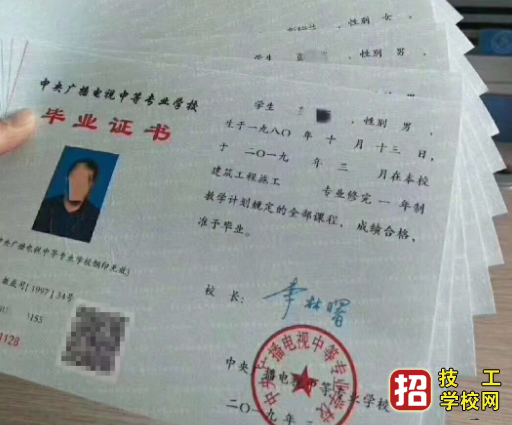 性别 女，
学生
，性别 男，
中央广播电视中等专业学校
毕业证书
学生
，性别 男，
生于一九八〇年 十 月 十三 日，
于 二〇一九 年 三 月在本校
建筑工程施工 专业修完 一 年制
教学计划规定的全部课程，成绩合格，
准予毕业。
中央广播电视中等专业学校钢印无效)
[1997]34号
155
1128
校 长：
李林曙
中央广播电视中等专业学校
中央广播电视中等专业学校
二〇一九年
招
技工
学校网